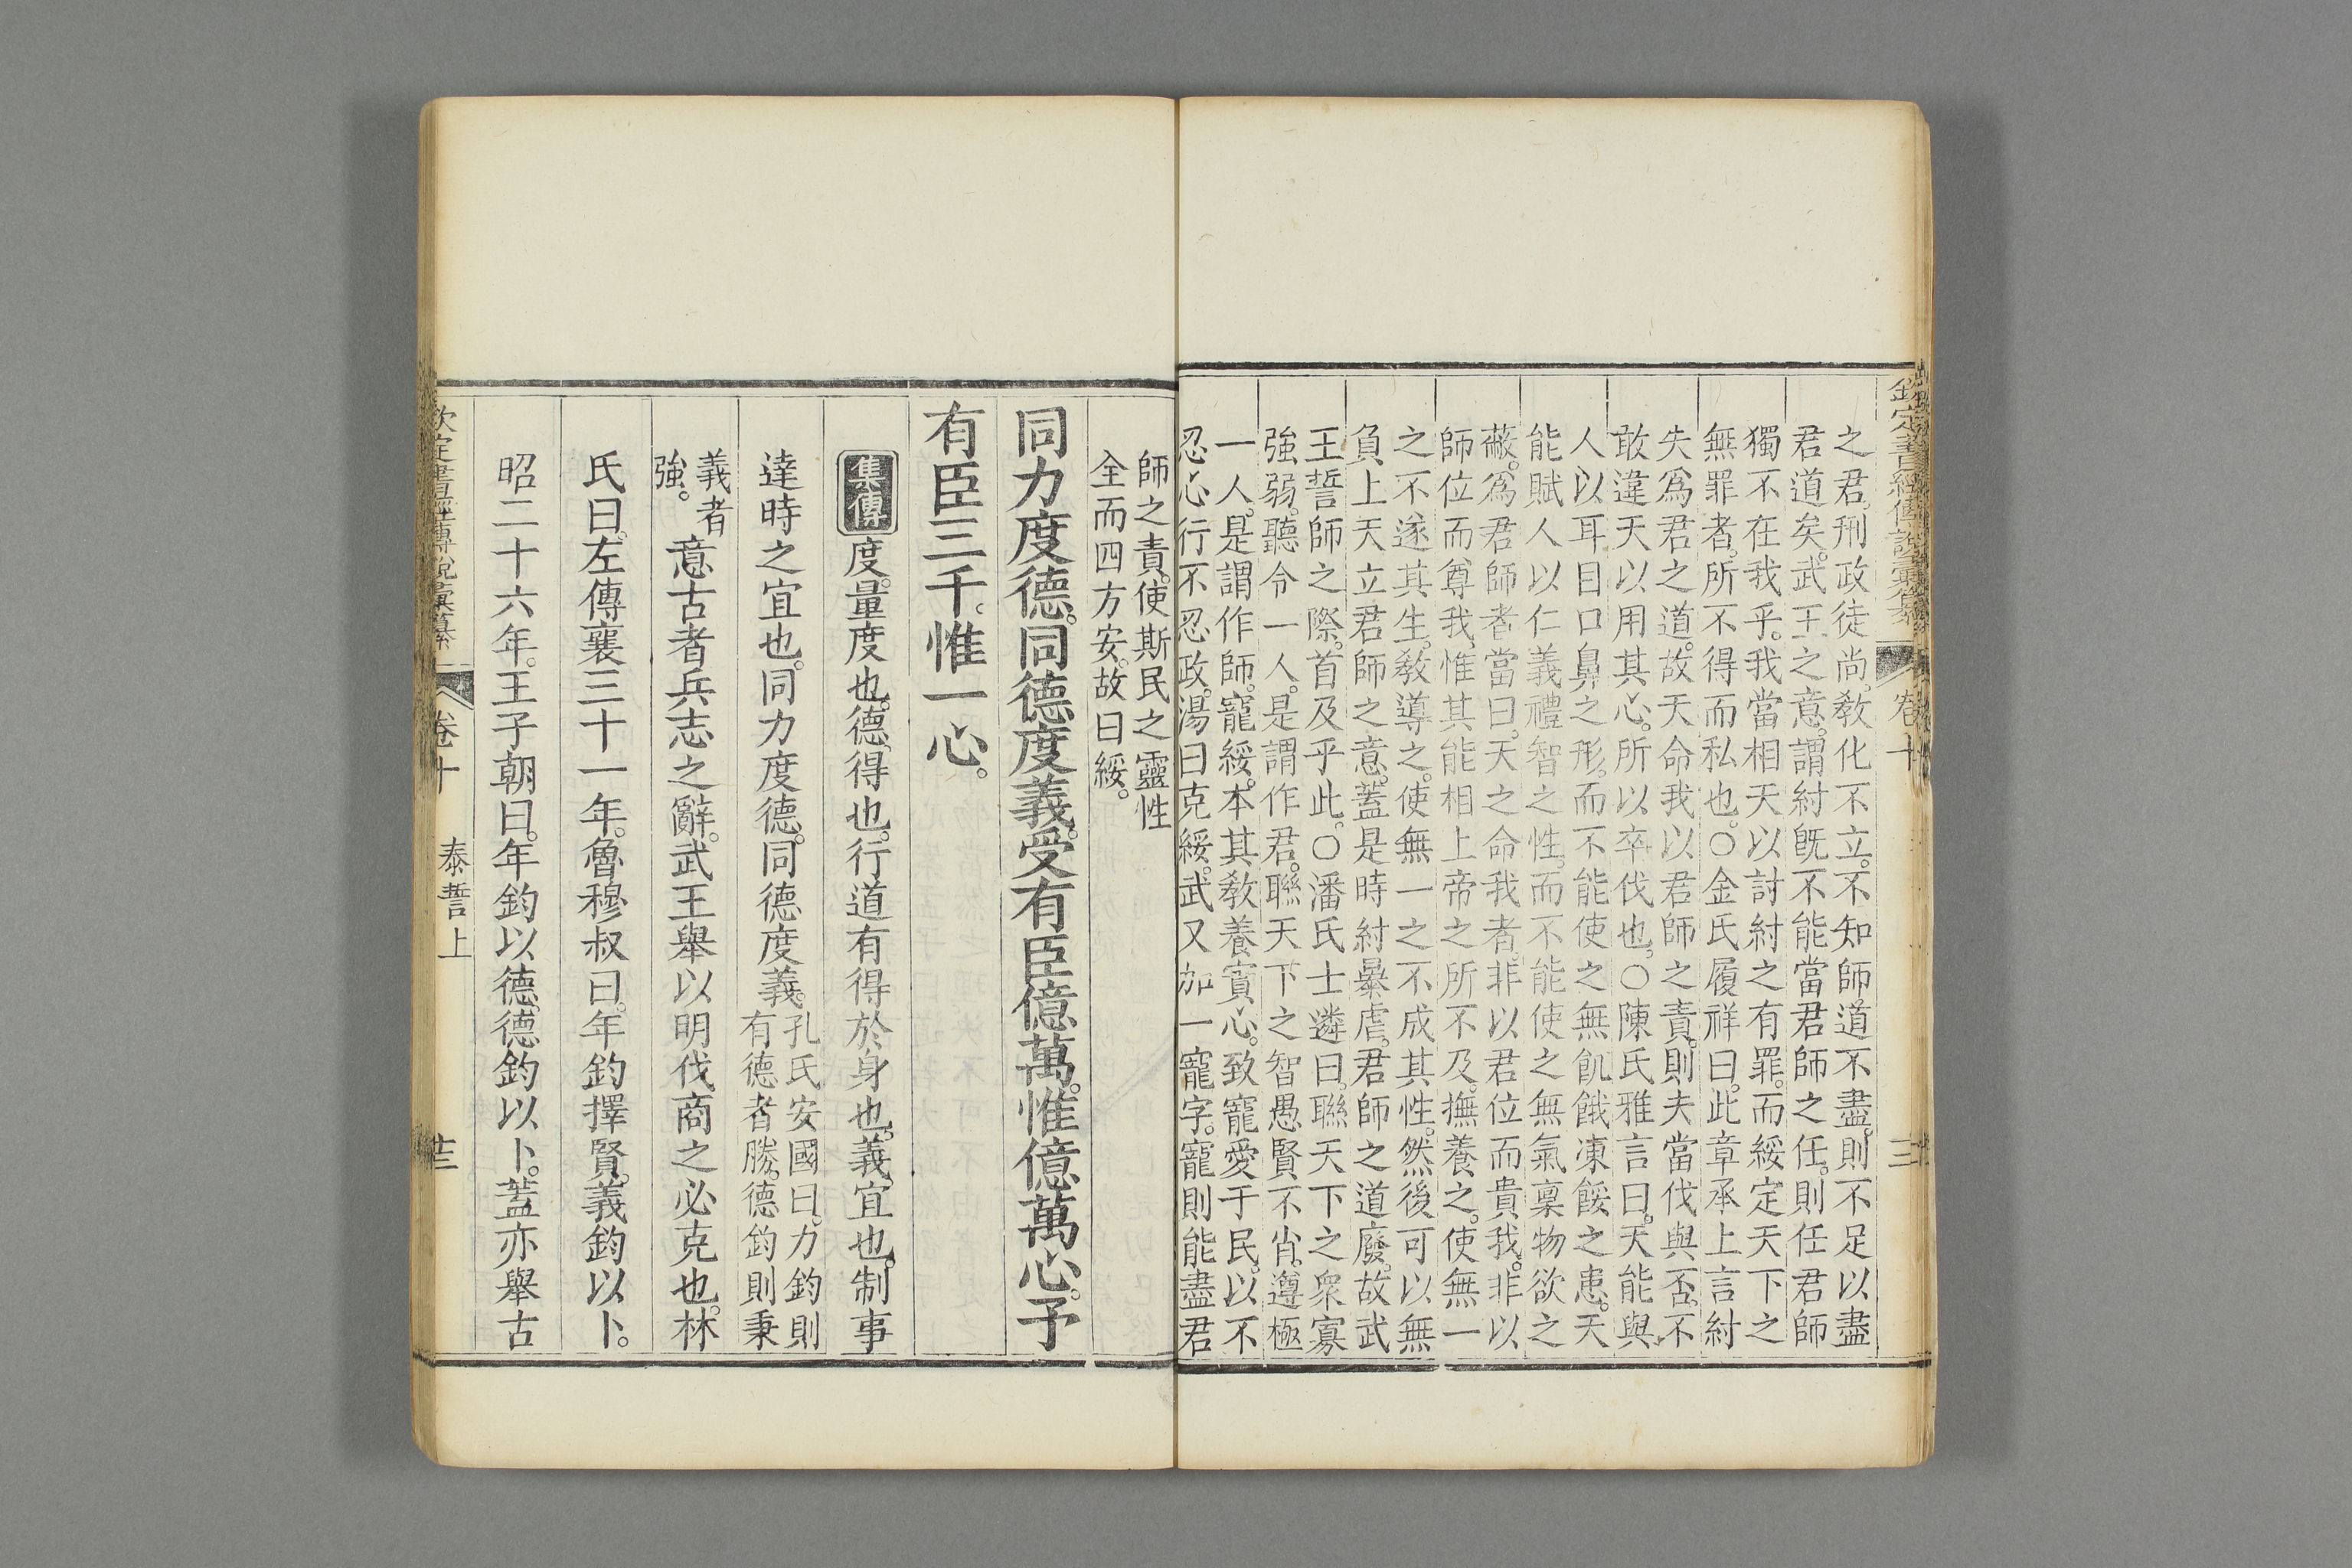 欽定書經傳說彙纂 卷十
之君刑政徒尚。敎化不立。不知師道不盡。則不足以盡
君道矣。武王之意。謂紂旣不能當君師之任。則任君師
獨不在我乎。我當相天以討紂之有罪。而綏定天下之
無罪者。所不得而私也。○金氏履祥曰。此章承上言紂
失爲君之道。故天命我以君師之責。則夫當伐與否。不
敢違天以用其心。所以卒伐也。○陳氏雅言曰。天能與
人以耳目口鼻之形。而不能使之無飢餓凍餒之患。天
能賦人以仁義禮智之性。而不能使之無氣稟物欲之
蔽。爲君師者。當曰。天之命我者。非以君位而貴我。非以
師位而尊我。惟其能相上帝之所不及。撫養之。使無一
之不遂其生。敎導之。使無一之不成其性。然後可以無
負上天立君師之意。蓋是時紂暴虐。君師之道廢。故武
王誓師之際。首及乎此。○潘氏士遴曰。聯天下之衆寡
強弱。聽令一人。是謂作君。聯天下之智愚賢不肖。遵極
一人。是謂作師。寵綏。本其敎養實心。致寵愛于民。以不
忍心行不忍政。湯曰克綏。武又加一寵字。寵則能盡君
師之責。使斯民之靈性
全而四方安。故曰綏。
同力度德。同德度義。受有臣億萬。惟億萬心。予
有臣三千。惟一心。
集傳 度。量度也。德。得也。行道有得於身也。義。宜也。制事
達時之宜也。同力度德。同德度義。孔氏安國曰。力鈞則
有德者勝。德鈞則秉
義者
強。意古者兵志之辭。武王舉以明伐商之必克也。林
氏曰。左傳襄三十一年。魯穆叔曰。年鈞擇賢。義鈞以卜。
昭二十六年。王子朝曰。年鈞以德。德鈞以卜。蓋亦舉古
欽定書經傳說彙纂 卷十 泰誓上